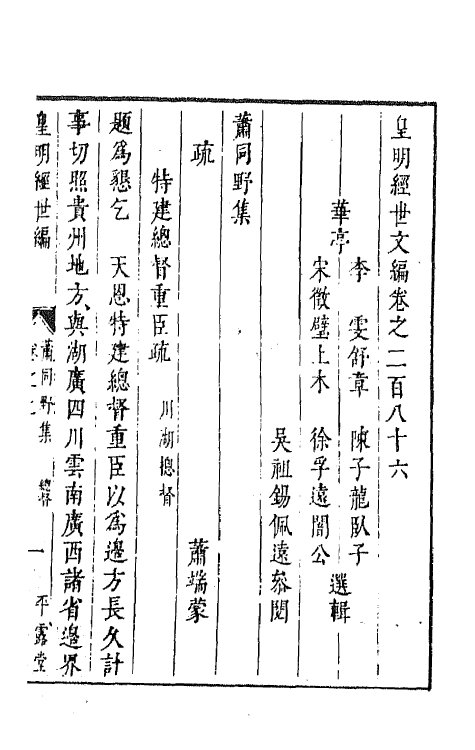 皇明經世文編卷之二百八十六
李　雯舒章　陳子龍臥子
華亭　選輯
宋徵璧上木　徐孚遠闇公
吳祖錫佩遠叅閱
蕭同野集
蕭端蒙
疏
特建總督重臣疏　川湖總督
題爲懇乞　天恩特建總督重臣以爲邊方長久計
事切照貴州地方、與湖廣四川雲南廣西諸省邊界
皇明經世編　蕭同野集　一　平露堂